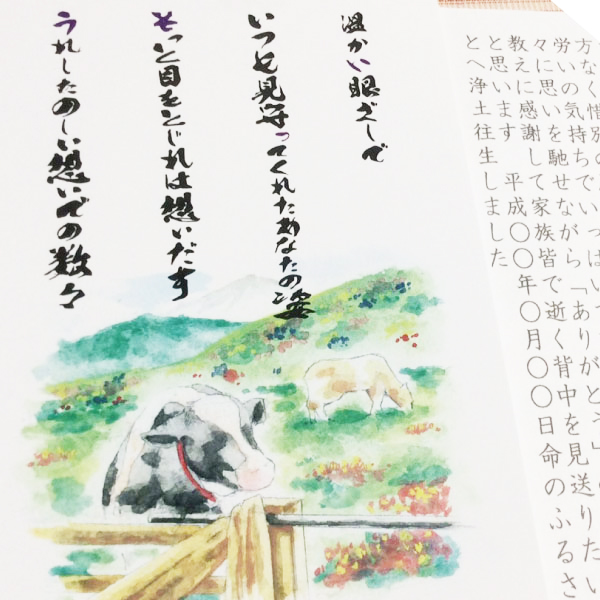 温かい眼ざしで
いつも見守ってくれたあなたの姿
そっと目をとじれば想いだす
うれしたのしい想いでの数々
方なく惜別の
労いの気持ちでいっぱいで
々に思いを馳せながら「ありがとう」の
教えに感謝して家族皆で逝く背中を見送りたい
と思います 平成〇〇年〇月〇〇日命のふるさ
とへ浄土往生しました